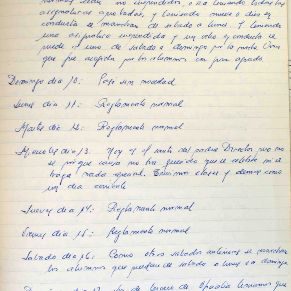 asignaturas aprobadas, y teniendo nueve o diez en
conducta se marchan de sábado a lunes y teniendo
una asignatura suspendida y un ocho en conducta se
puede ir uno de sábado a domingo por la noche. Cosa
que fue acogida por los alumnos con gran agrado.
Domingo día 10: Pasó sin novedad
Lunes día 11: Reglamento normal
Martes día 12: Reglamento normal
Miércoles día 13. Hoy es el santo del padre Director pero no
se por que causa no ha querido que se celebre ni se
haga nada especial. Tuvimos clases y demás como
un día corriente
Jueves día 14: Reglamento normal
Viernes día 15: Reglamento normal
Sábado día 16: Como otros sábados anteriores se marcharon
los alumnos que pueden de sábado a lunes o a domingo